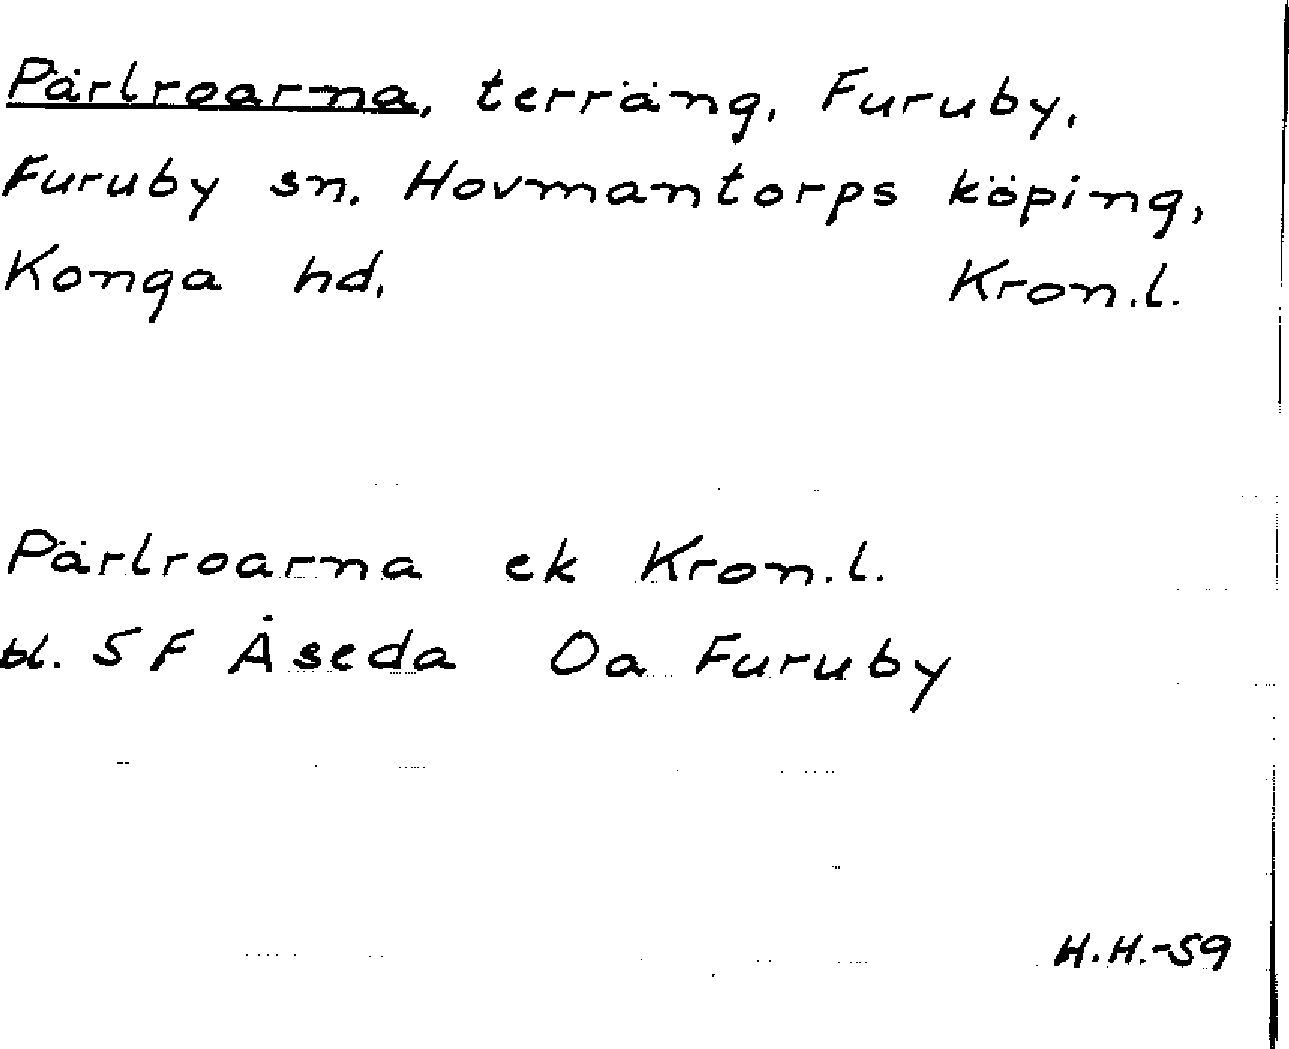 Pärlroarna, terräng, Furuby,
Furuby sn. Hovmantorps köping,
Konga hd. Kron.l.
Pärlroarna ek Kron.l.
bl. 5 F Åseda Oa Furuby
H.H.-59